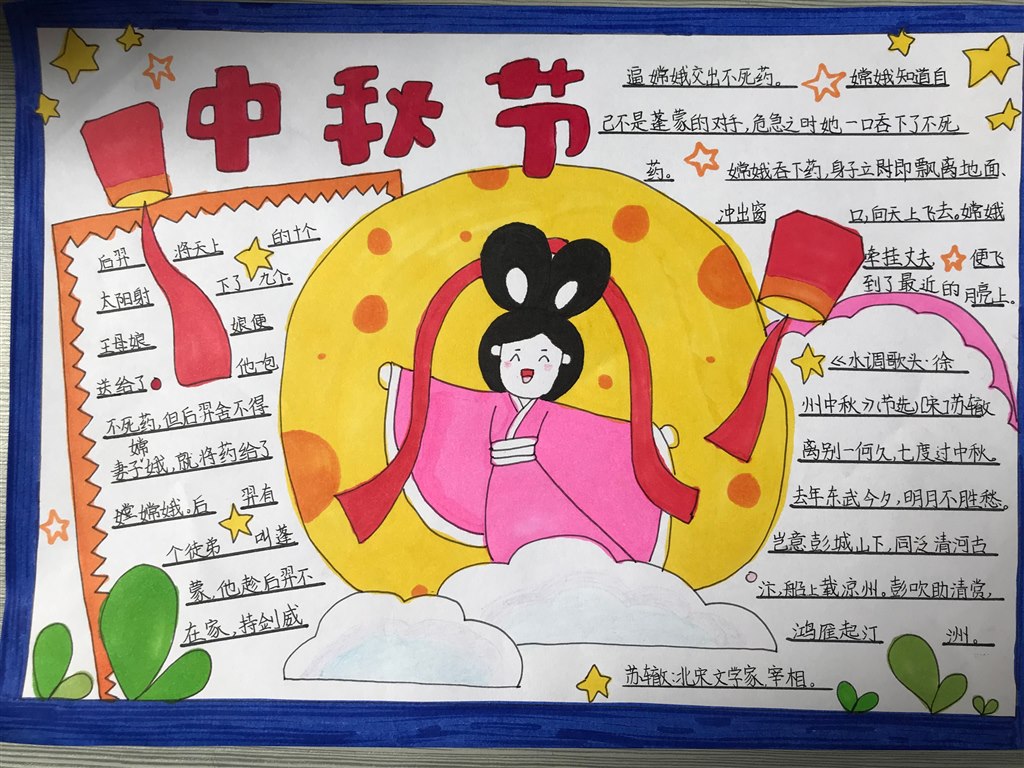 中秋节
后羿 将天上 的十个
太阳射 下了 九个.
王母娘 娘便
送给了 他一包
不死药,但后羿舍不得
嫦
妻子娥,既将药给了
嫦娥。后 羿有
个徒弟 叫蓬
蒙,他趁后羿不
在家,持剑威
逼嫦娥交出不死药。 嫦娥知道自
己不是蓬蒙的对手,危急之时她,一口吞下了不死
药。 嫦娥吞下药,身子立时即飘离地面、
冲出窗 口,向天上飞去。嫦娥
牵挂丈夫 便飞
到了最近的月亮上.
《水调歌头·徐
州中秋》(节选)[宋]苏辙
离别一何久,七度过中秋.
去年东武今夕,明月不胜愁。
岂意彭城山下,同泛清河古
汴,船上载凉州。彭吹助清赏,
鸿雁起汀 洲。
苏辙:北宋文学家.宰相.